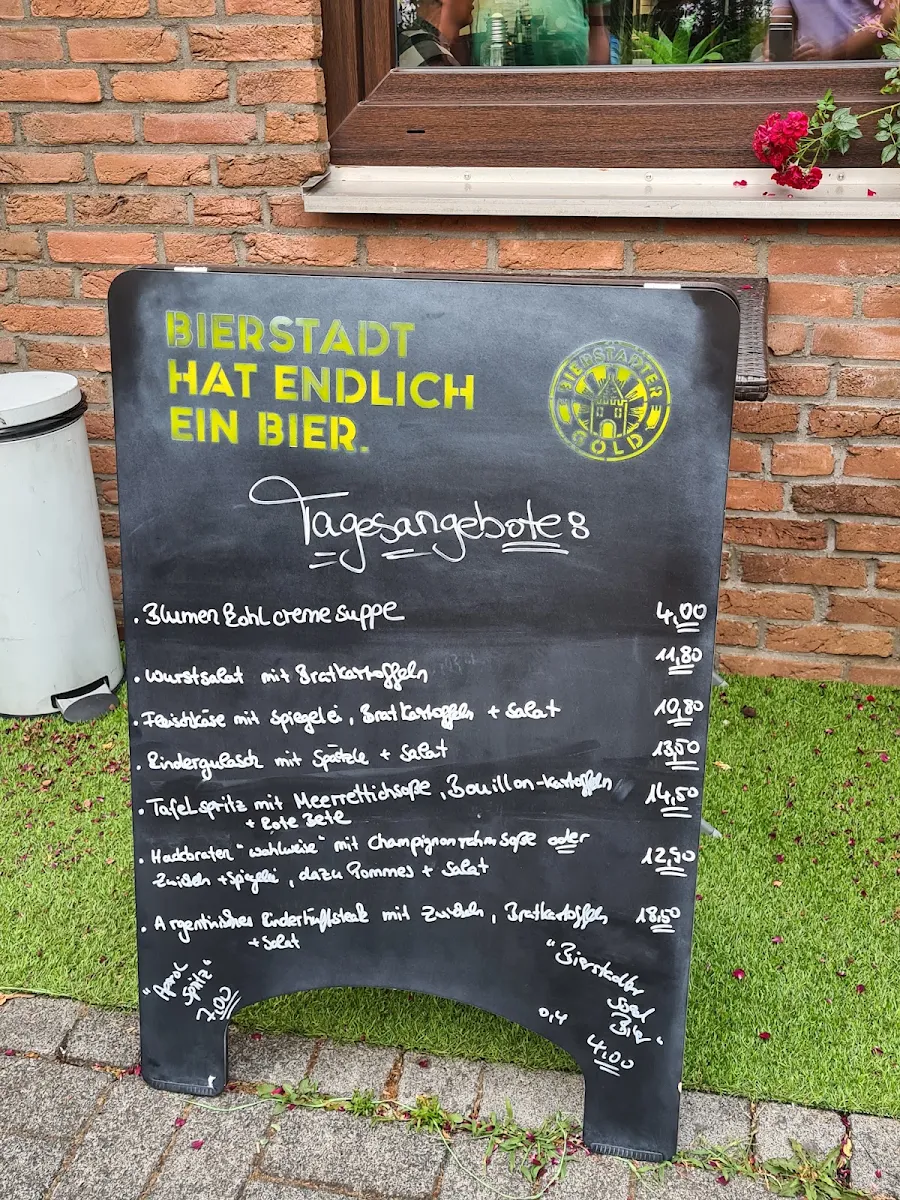 BIERSTADT
HAT ENDLICH
EIN BIER.
BIERSTADTER
GOLD
Tagesangebote:
· Blumenkohlcremesuppe 4,00
· Wurstsalat mit Bratkartoffeln 11,80
· Fleischkäse mit Spiegelei, Bratkartoffeln + Salat 10,80
· Rindergulasch mit Spätzle + Salat 13,50
· Tafelspitz mit Meerrettichsoße, Bouillon-Kartoffeln 14,50
+ Rote Bete
· Hackbraten "wahlweise" mit Champignonrahmsoße oder 12,50
Zwiebeln + Spiegelei, dazu Pommes + Salat
· Argentinisches Rinderhüftsteak mit Zwiebeln, Bratkartoffeln 18,50
+ Salat
"Aperol
Spritz"
7,00
"Bierstadter
Gold
Bier"
0,4
4,00